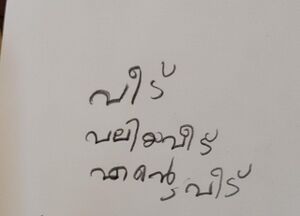 വീട്
വലിയവീട്
എന്റെ വീട്